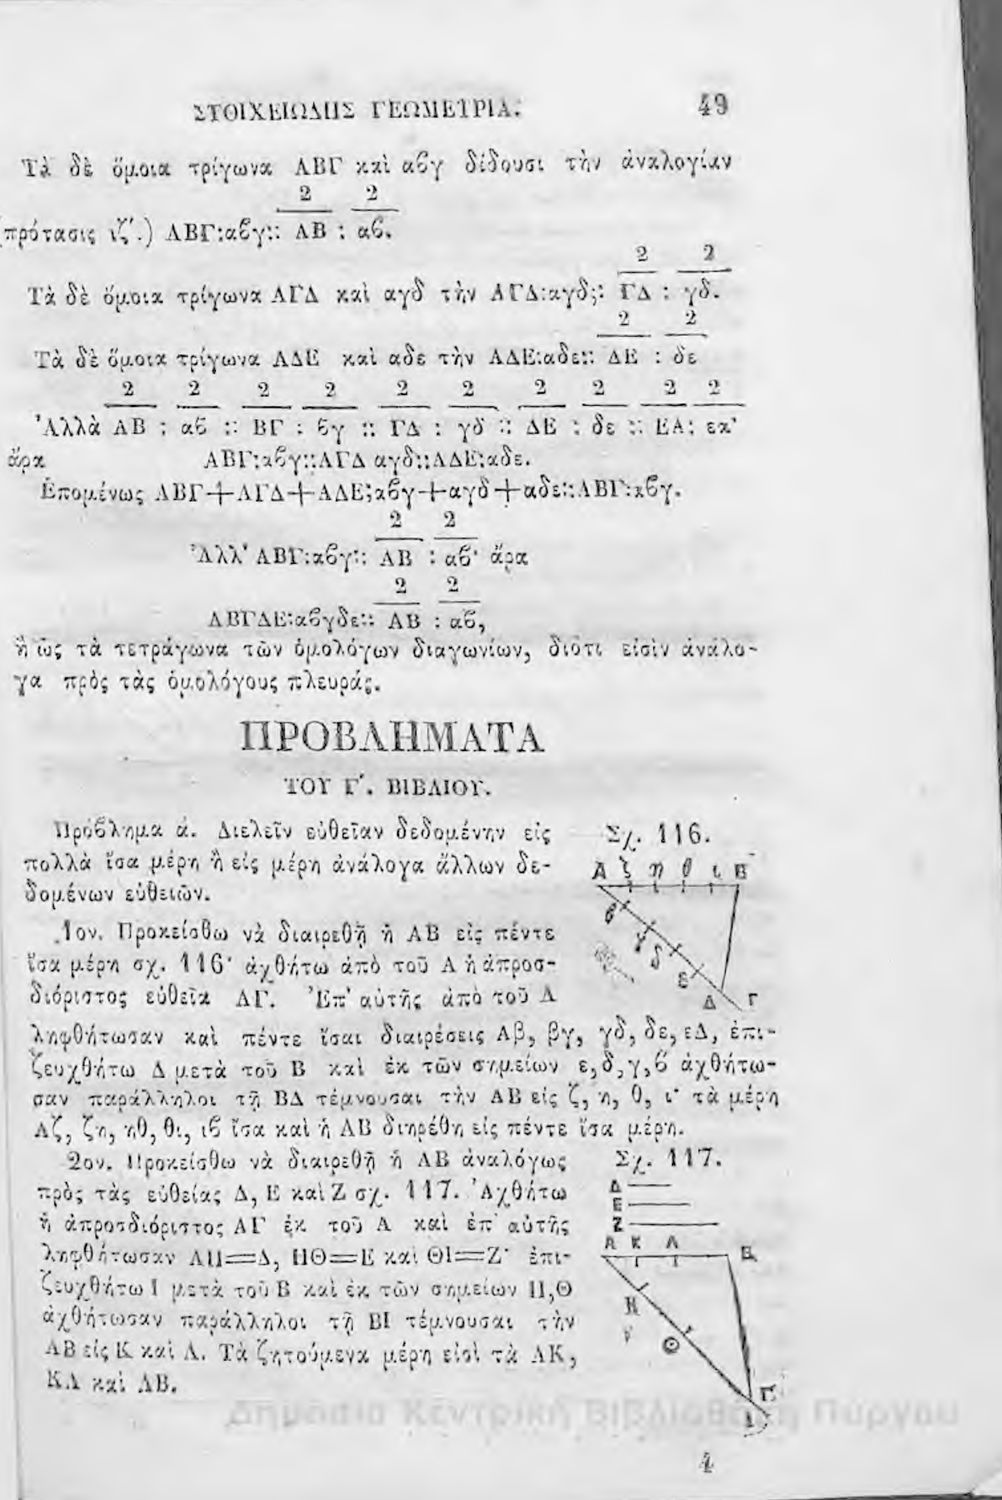 ΣΤΟΙΧΕΙΩΔΗΣ ΓΕΩΜΕΤΡΙΑ. 49
Τὰ δὲ ὅμοια τρίγωνα ΑΒΓ καὶ αϐγ δίδουσι τὴν ἀναλογίαν
2 2
(πρότασις ιζʹ.) ΑΒΓ:αϐγ:: ΑΒ : αϐ.
2 2
Τὰ δὲ ὅμοια τρίγωνα ΑΓΔ καὶ αγδ τὴν ΑΓΔ:αγδ:: ΓΔ : γδ.
2 2
Τὰ δὲ ὅμοια τρίγωνα ΑΔΕ καὶ αδε τὴν ΑΔΕ:αδε:: ΔΕ : δε
2 2 2 2 2 2 2 2 2 2
Ἀλλὰ ΑΒ : αϐ :: ΒΓ : ϐγ :: ΓΔ : γδ :: ΔΕ : δε :: ΕΑ: εα·
ἄρα ΑΒΓ:αϐγ::ΑΓΔ αγδ::ΑΔΕ:αδε.
Ἑπομένως ΑΒΓ+ΑΓΔ+ΑΔΕ:αϐγ+αγδ+αδε::ΑΒΓ:αϐγ.
2 2
Ἀλλ' ΑΒΓ:αϐγ:: ΑΒ : αϐ· ἄρα
2 2
ΑΒΓΔΕ:αϐγδε:: ΑΒ : αϐ,
ἢ ὡς τὰ τετράγωνα τῶν ὁμολόγων διαγωνίων, διότι εἰσὶν ἀνάλο-
γα πρὸς τὰς ὁμολόγους πλευράς.
ΠΡΟΒΛΗΜΑΤΑ
ΤΟΥ Γ΄. ΒΙΒΛΙΟΥ.
Πρόϐλημα ά. Διελεῖν εὐθεῖαν δεδομένην εἰς
πολλὰ ἴσα μέρη ἢ εἰς μέρη ἀνάλογα ἄλλων δε-
δομένων εὐθειῶν.
Σχ. 116.
Α ζ η θ ι Β
β γ δ ε Δ Γ
1ον. Προκείσθω νὰ διαιρεθῇ ἡ ΑΒ εἰς πέντε
ἴσα μέρη σχ. 116· ἀχθήτω ἀπὸ τοῦ Α ἡ ἀπροσ-
διόριστος εὐθεῖα ΑΓ. Ἐπ' αὐτῆς ἀπὸ τοῦ Α
ληφθήτωσαν καὶ πέντε ἴσαι διαιρέσεις Αβ, βγ, γδ, δε, εΔ, ἐπι-
ζευχθήτω Δ μετὰ τοῦ Β καὶ ἐκ τῶν σημείων ε,δ,γ,ϐ ἀχθήτω-
σαν παράλληλοι τῇ ΒΔ τέμνουσαι τὴν ΑΒ εἰς ζ, η, θ, ι· τὰ μέρη
Αζ, ζη, ηθ, θι, ιϐ ἴσα καὶ ἡ ΑΒ διῃρέθη εἰς πέντε ἴσα μέρη.
2ον. Προκείσθω νὰ διαιρεθῇ ἡ ΑΒ ἀναλόγως
πρὸς τὰς εὐθείας Δ, Ε καὶ Ζ σχ. 117. Ἀχθήτω
ἡ ἀπροσδιόριστος ΑΓ ἐκ τοῦ Α καὶ ἐπ' αὐτῆς
ληφθήτωσαν ΑΗ=Δ, ΗΘ=Ε καὶ ΘΙ=Ζ· ἐπι-
ζευχθήτω Ι μετὰ τοῦ Β καὶ ἐκ τῶν σημείων Η,Θ
ἀχθήτωσαν παράλληλοι τῇ ΒΙ τέμνουσαι τὴν
ΑΒ εἰς Κ καὶ Λ. Τὰ ζητούμενα μέρη εἰσὶ τὰ ΑΚ,
ΚΛ καὶ ΛΒ.
Σχ. 117.
Δ
Ε
Ζ
Α Κ Λ Β
Η
Θ
Γ
Ι
Δημόσια Κεντρική Βιβλιοθήκη Πύργου
4